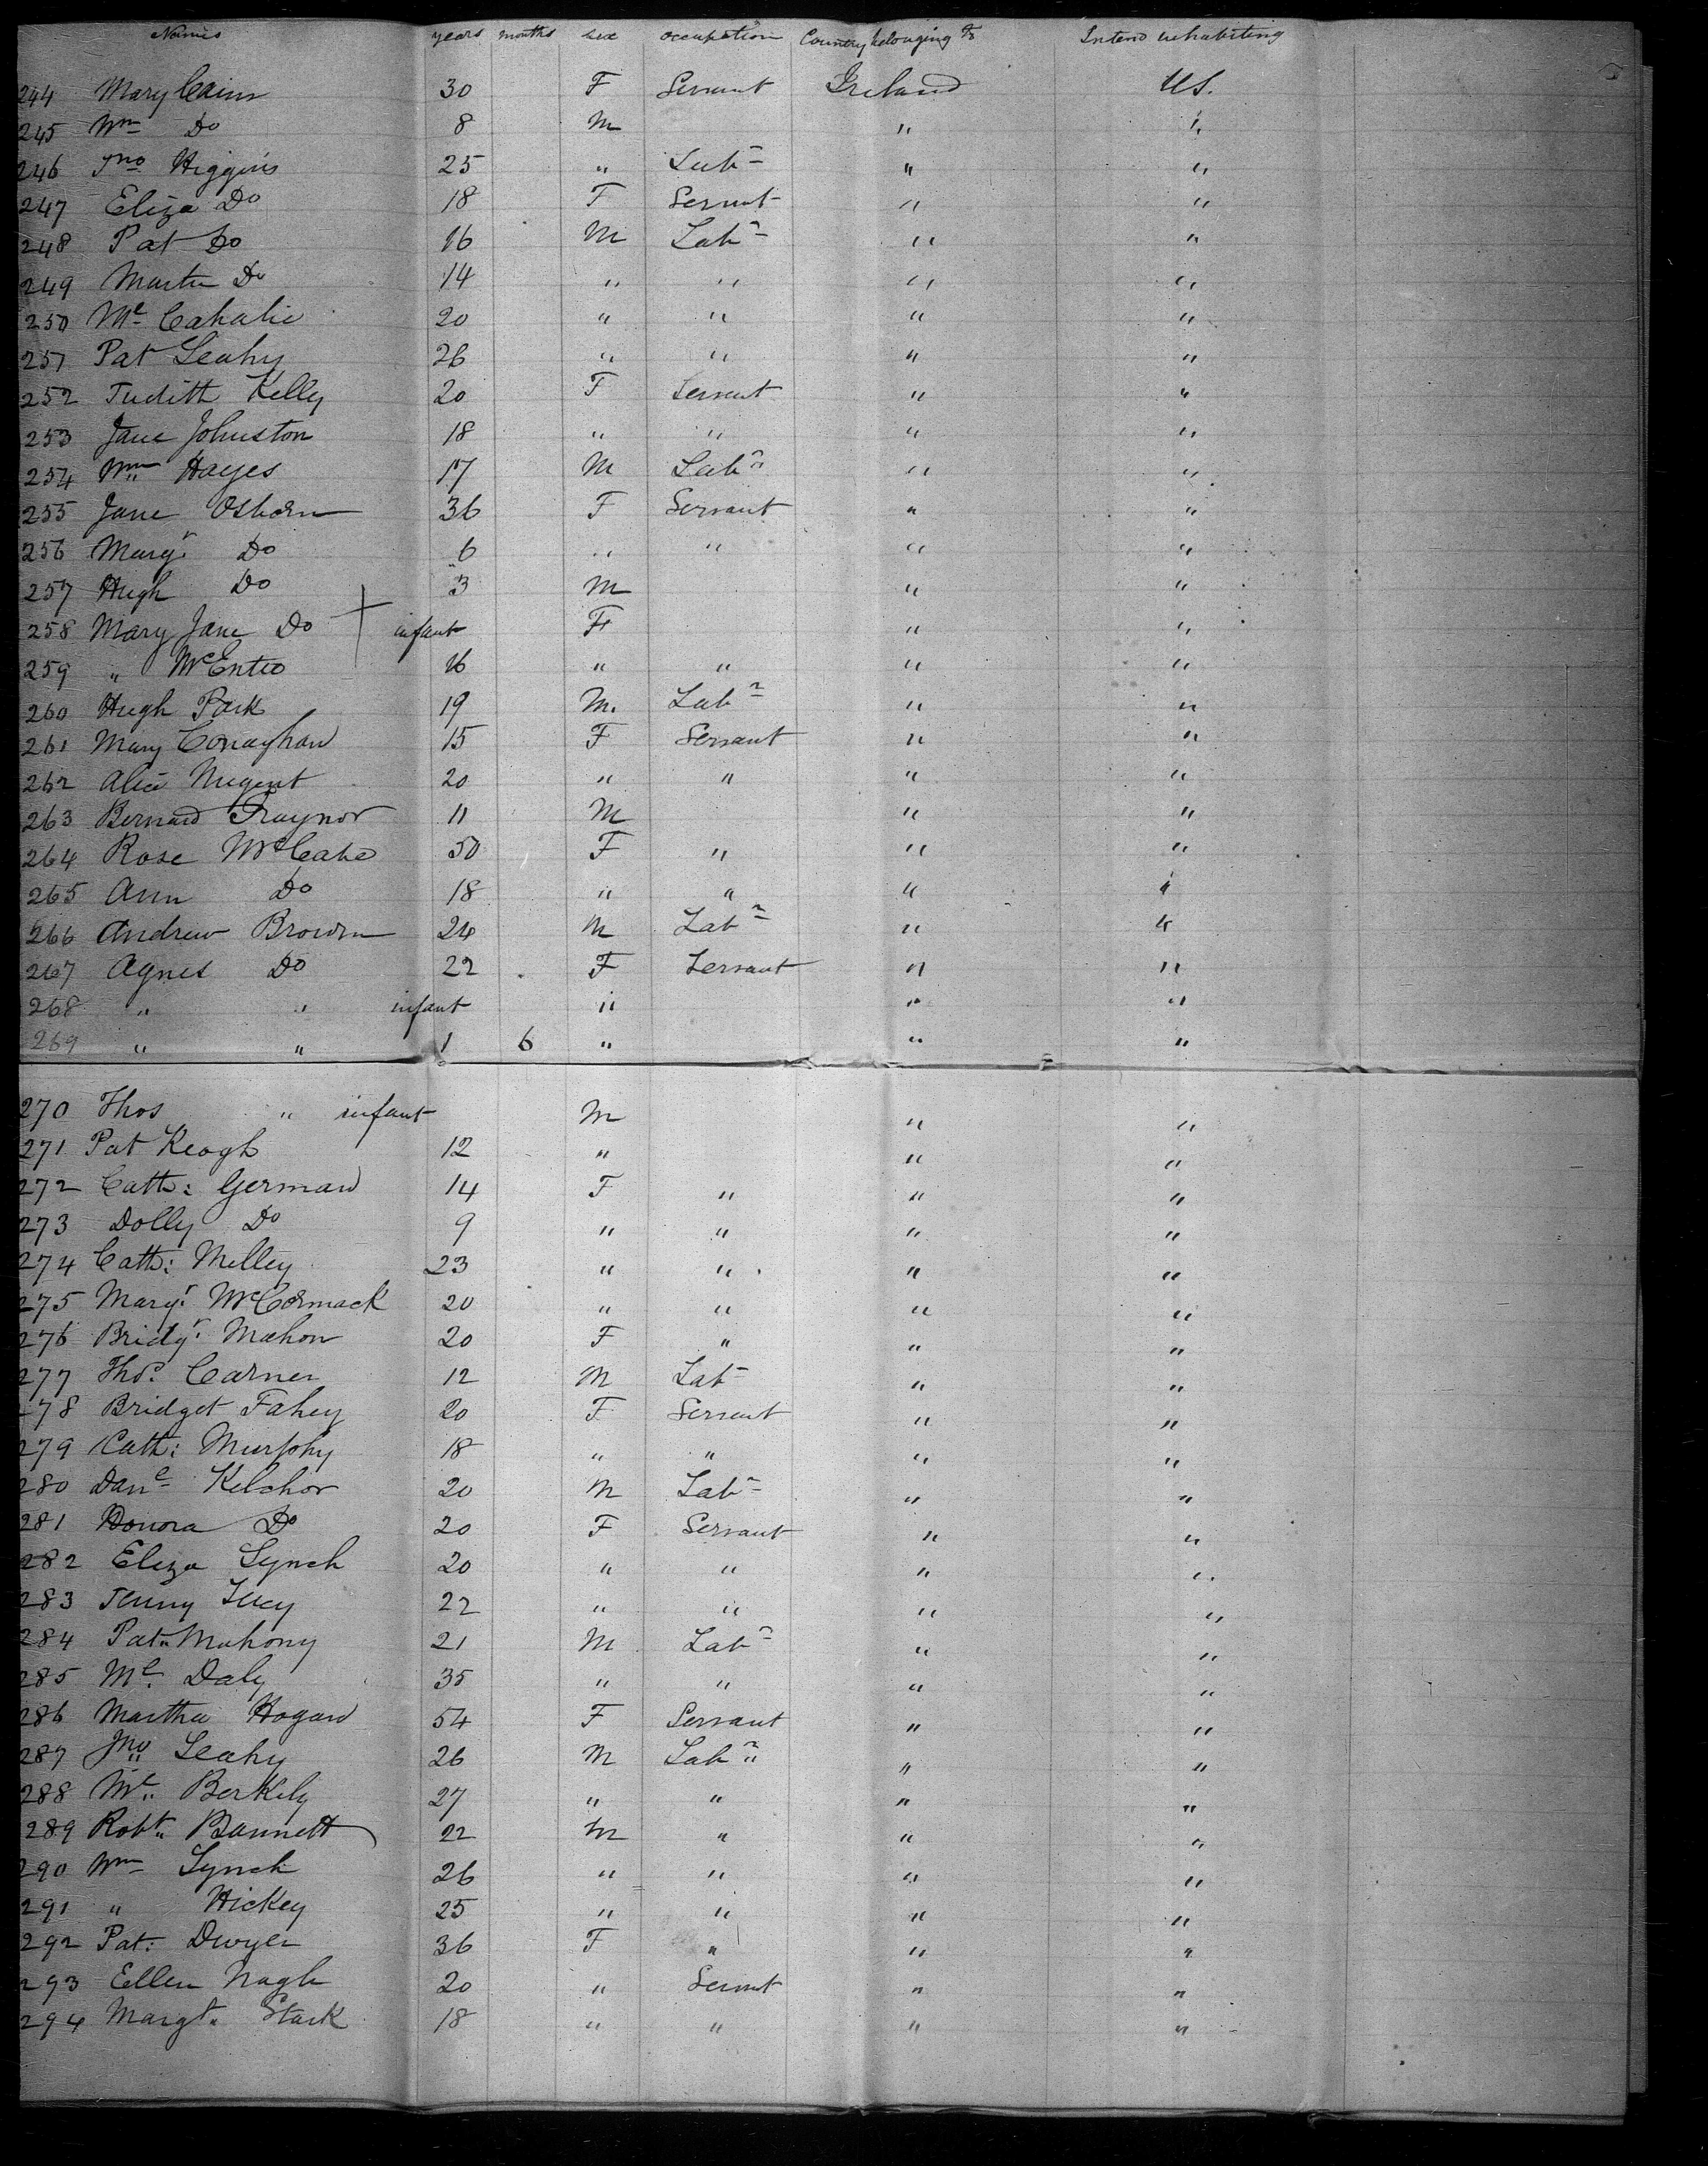 Names years months sex occupation Country belonging to Intend inhabiting
244 Mary Cain 30 F Servant Ireland U S.
245 Wm Do 8 M " "
246 Jno Higgins 25 " Labr " "
247 Eliza Do 18 F Servnt " "
248 Pat Do 16 M Labr " "
249 Martin Do 14 " " " "
250 Ml Cahalie 20 " " " "
251 Pat Leahy 26 " " " "
252 Judith Kelly 20 F Servant " "
253 Jane Johnston 18 " " " "
254 Wm Hayes 17 M Labr " "
255 Jane Osborn 36 F Servant " "
256 Margr Do 6 " " " "
257 Hugh Do 3 M " "
258 Mary Jane Do infant F " "
259 " McEntee 16 " " " "
260 Hugh Park 19 M. Labr " "
261 Mary Conaghan 15 F Servant " "
262 Alice Nugent 20 " " " "
263 Bernard Traynor 11 M " "
264 Rose McCabe 50 F " " "
265 Ann Do 18 " " " "
266 Andrew Brown 24 M Labr " "
267 Agnes Do 22 F Servant " "
268 " " infant " " "
269 " " 1 6 " " "
270 Thos " infant M " "
271 Pat Keogh 12 " " "
272 Cath: German 14 F " " "
273 Dolly Do 9 " " " "
274 Cath: Melley 23 " " " "
275 Margr McCormack 20 " " " "
276 Bridgr Mahon 20 F " " "
277 Thos. Carner 12 M Labr " "
278 Bridget Fahey 20 F Servant " "
279 Cath: Murphy 18 " " " "
280 Danl Kelchor 20 M Labr " "
281 Honora Do 20 F Servant " "
282 Eliza Lynch 20 " " " "
283 Jenny Lucy 22 " " " "
284 Pat" Mahony 21 M Labr " "
285 Ml. Daly 35 " " " "
286 Martha Hogan 54 F Servant " "
287 Jno Leahy 26 M Labr " "
288 Ml Berkely 27 " " " "
289 Robt" Bannett 22 M " " "
290 Wm Lynch 26 " " " "
291 " Hickey 25 " " " "
292 Pat: Dwyer 36 F " " "
293 Ellen Nagle 20 " Servnt " "
294 Margt. Stark 18 " " " "